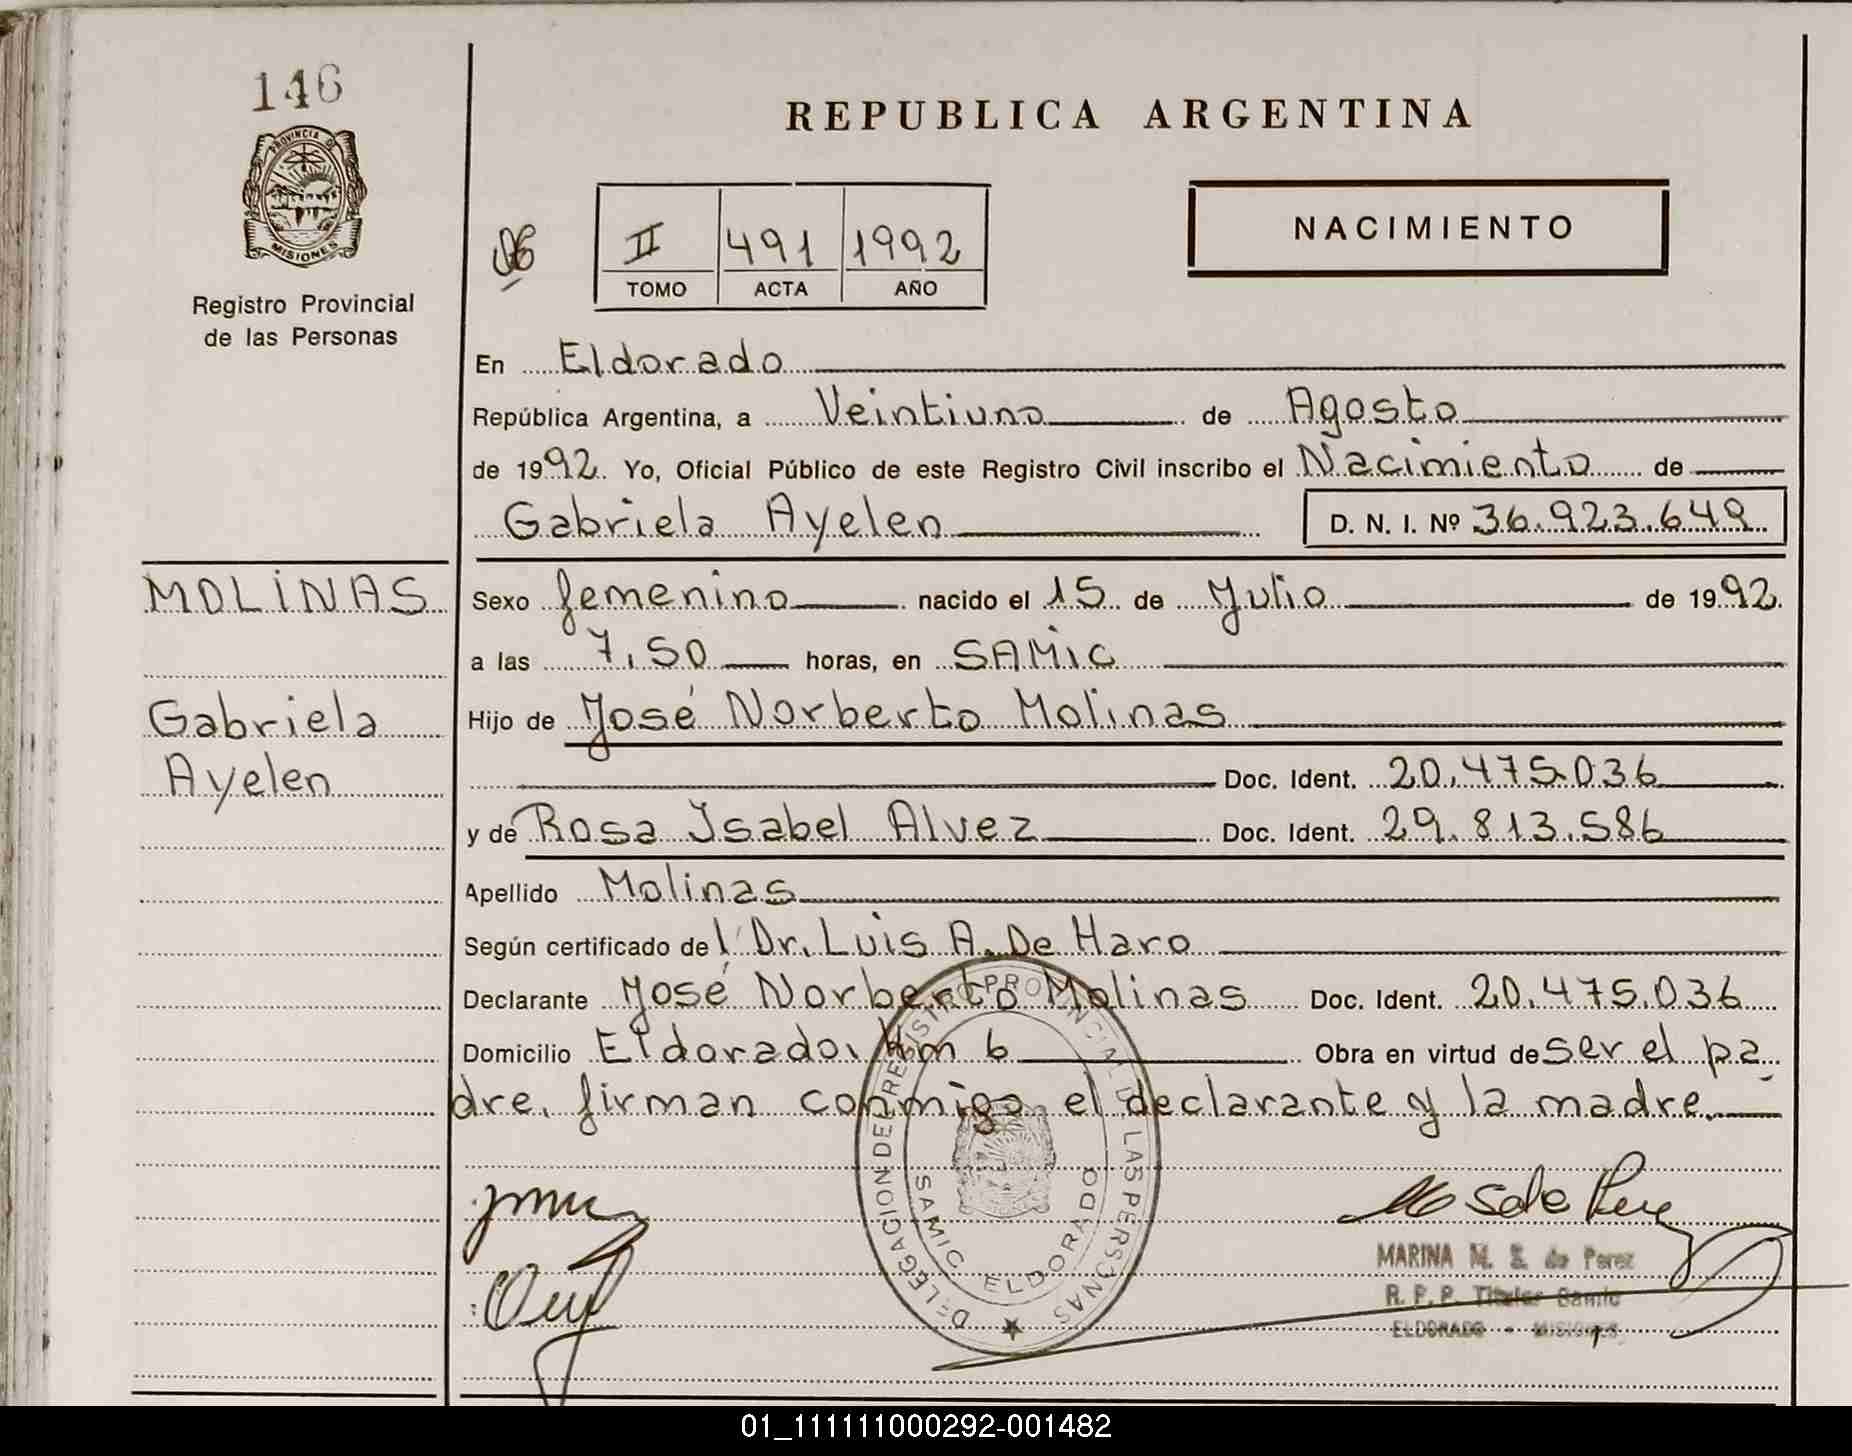 146
REPUBLICA ARGENTINA
PROVINCIA DE
MISIONES
Registro Provincial
de las Personas
II 491 1992
TOMO ACTA AÑO
NACIMIENTO
En Eldorado
República Argentina, a Veintiuno de Agosto
de 1992. Yo, Oficial Público de este Registro Civil inscribo el Nacimiento de
Gabriela Ayelen D. N. I. Nº 36.923.649
MOLINAS
Gabriela
Ayelen
Sexo femenino nacido el 15 de Julio de 1992.
a las 7,50 horas, en SAMIC
Hijo de José Norberto Molinas
Doc. Ident. 20.475.036
y de Rosa Isabel Alvez Doc. Ident. 29.813.586
Apellido Molinas
Según certificado del Dr. Luis A. De Haro
Declarante José Norberto Molinas Doc. Ident. 20.475.036
Domicilio Eldorado, Km 6 Obra en virtud de ser el pa
dre, firman conmigo el declarante y la madre.
DELEGACION DE REGISTRO PROVINCIAL DE LAS PERSONAS
SAMIC ELDORADO
MARINA M. S. de Perez
R. P. P. Titular Samic
ELDORADO - MISIONES
01_111111000292-001482